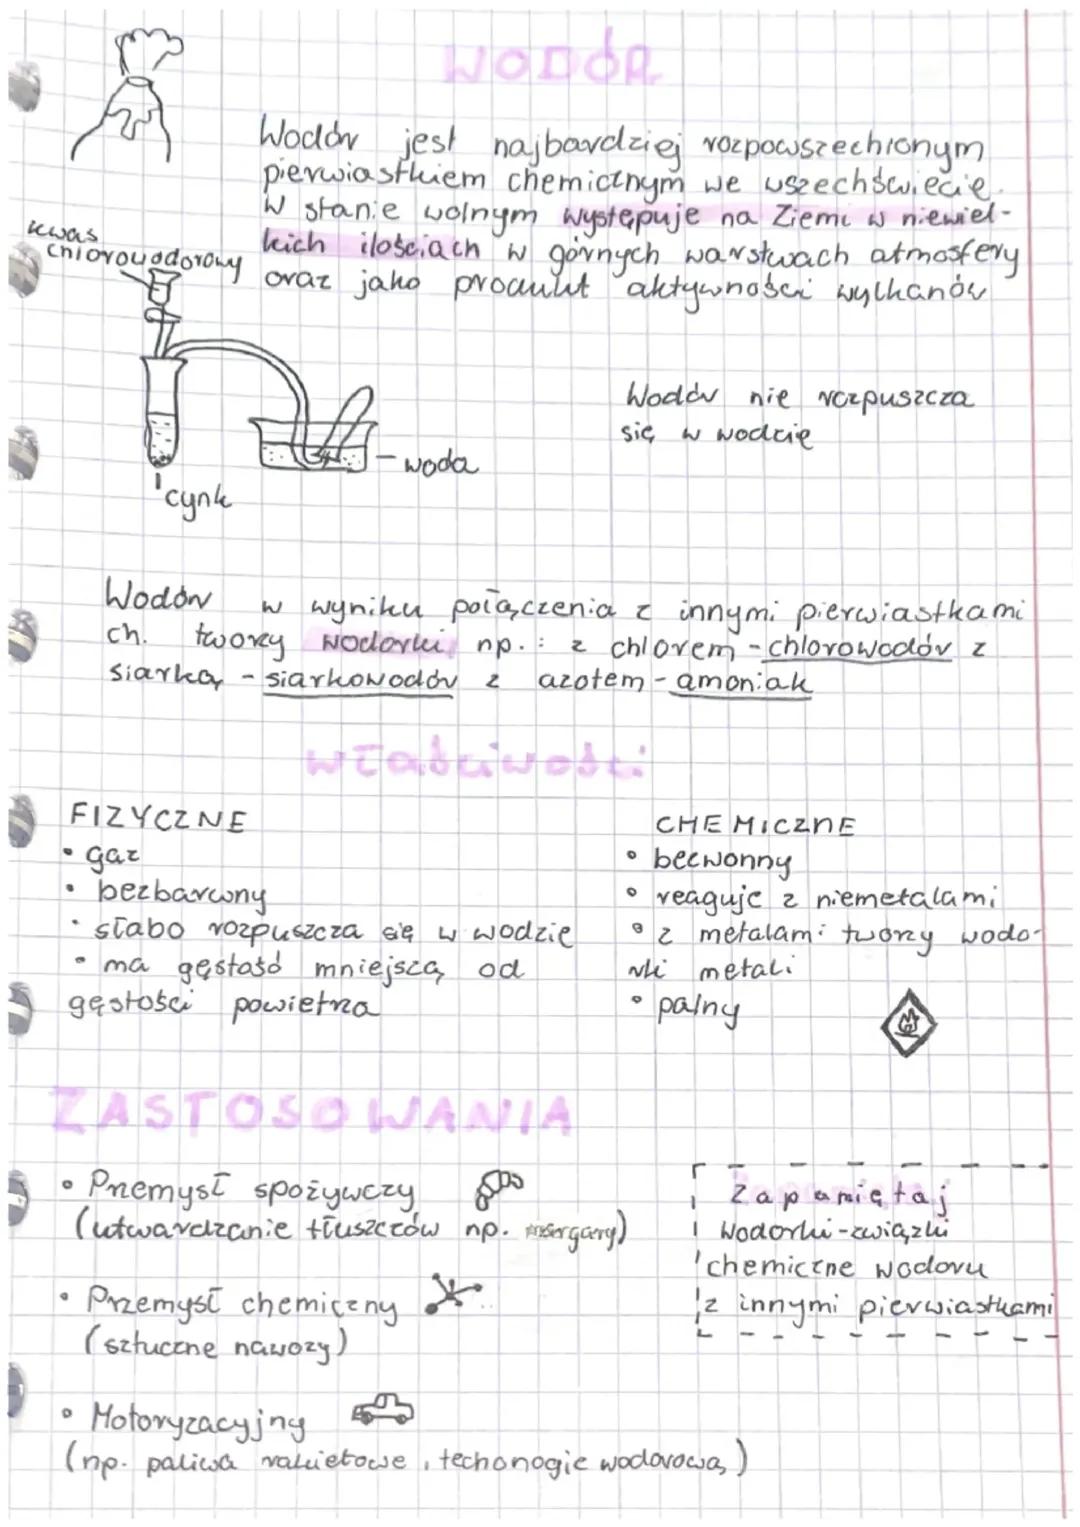 WODÓR
Wodór jest najbardziej rozpowszechionym
pierwiastkiem chemicznym we wszechświecie.
W stanie wolnym występuje na Ziemi w niewiel-
kich ilościach w górnych warstwach atmosfery
oraz jako produkt aktywności wylkanów
kwas
chlorowodorowy
Wodór nie rozpuszcza
się w wodzie
- woda
cynk
Wodór w wyniku połączenia z innymi pierwiastkami
ch. tworzy wodorki np.: z chlorem - chlorowodór z
siarką - siarkowodór z azotem - amoniak
właściwości
FIZYCZNE
• gaz
• bezbarwny
• słabo rozpuszcza się w wodzie
• ma gęstość mniejszą od
gęstości powietrza
CHEMICZNE
• bezwonny
• reaguje z niemetalami
• z metalami tworzy wodo-
rki metali
• palny
ZASTOSOWANIA
• Przemysł spożywczy
(utwardzanie tłuszczów np. margary)
• Przemysł chemiczny
(sztuczne nawozy)
• Motoryzacyjny
(np. paliwa rakietowe, techonogie wodorową)
Zapamiętaj
Wodorki - związki
chemiczne wodoru
z innymi pierwiastkami